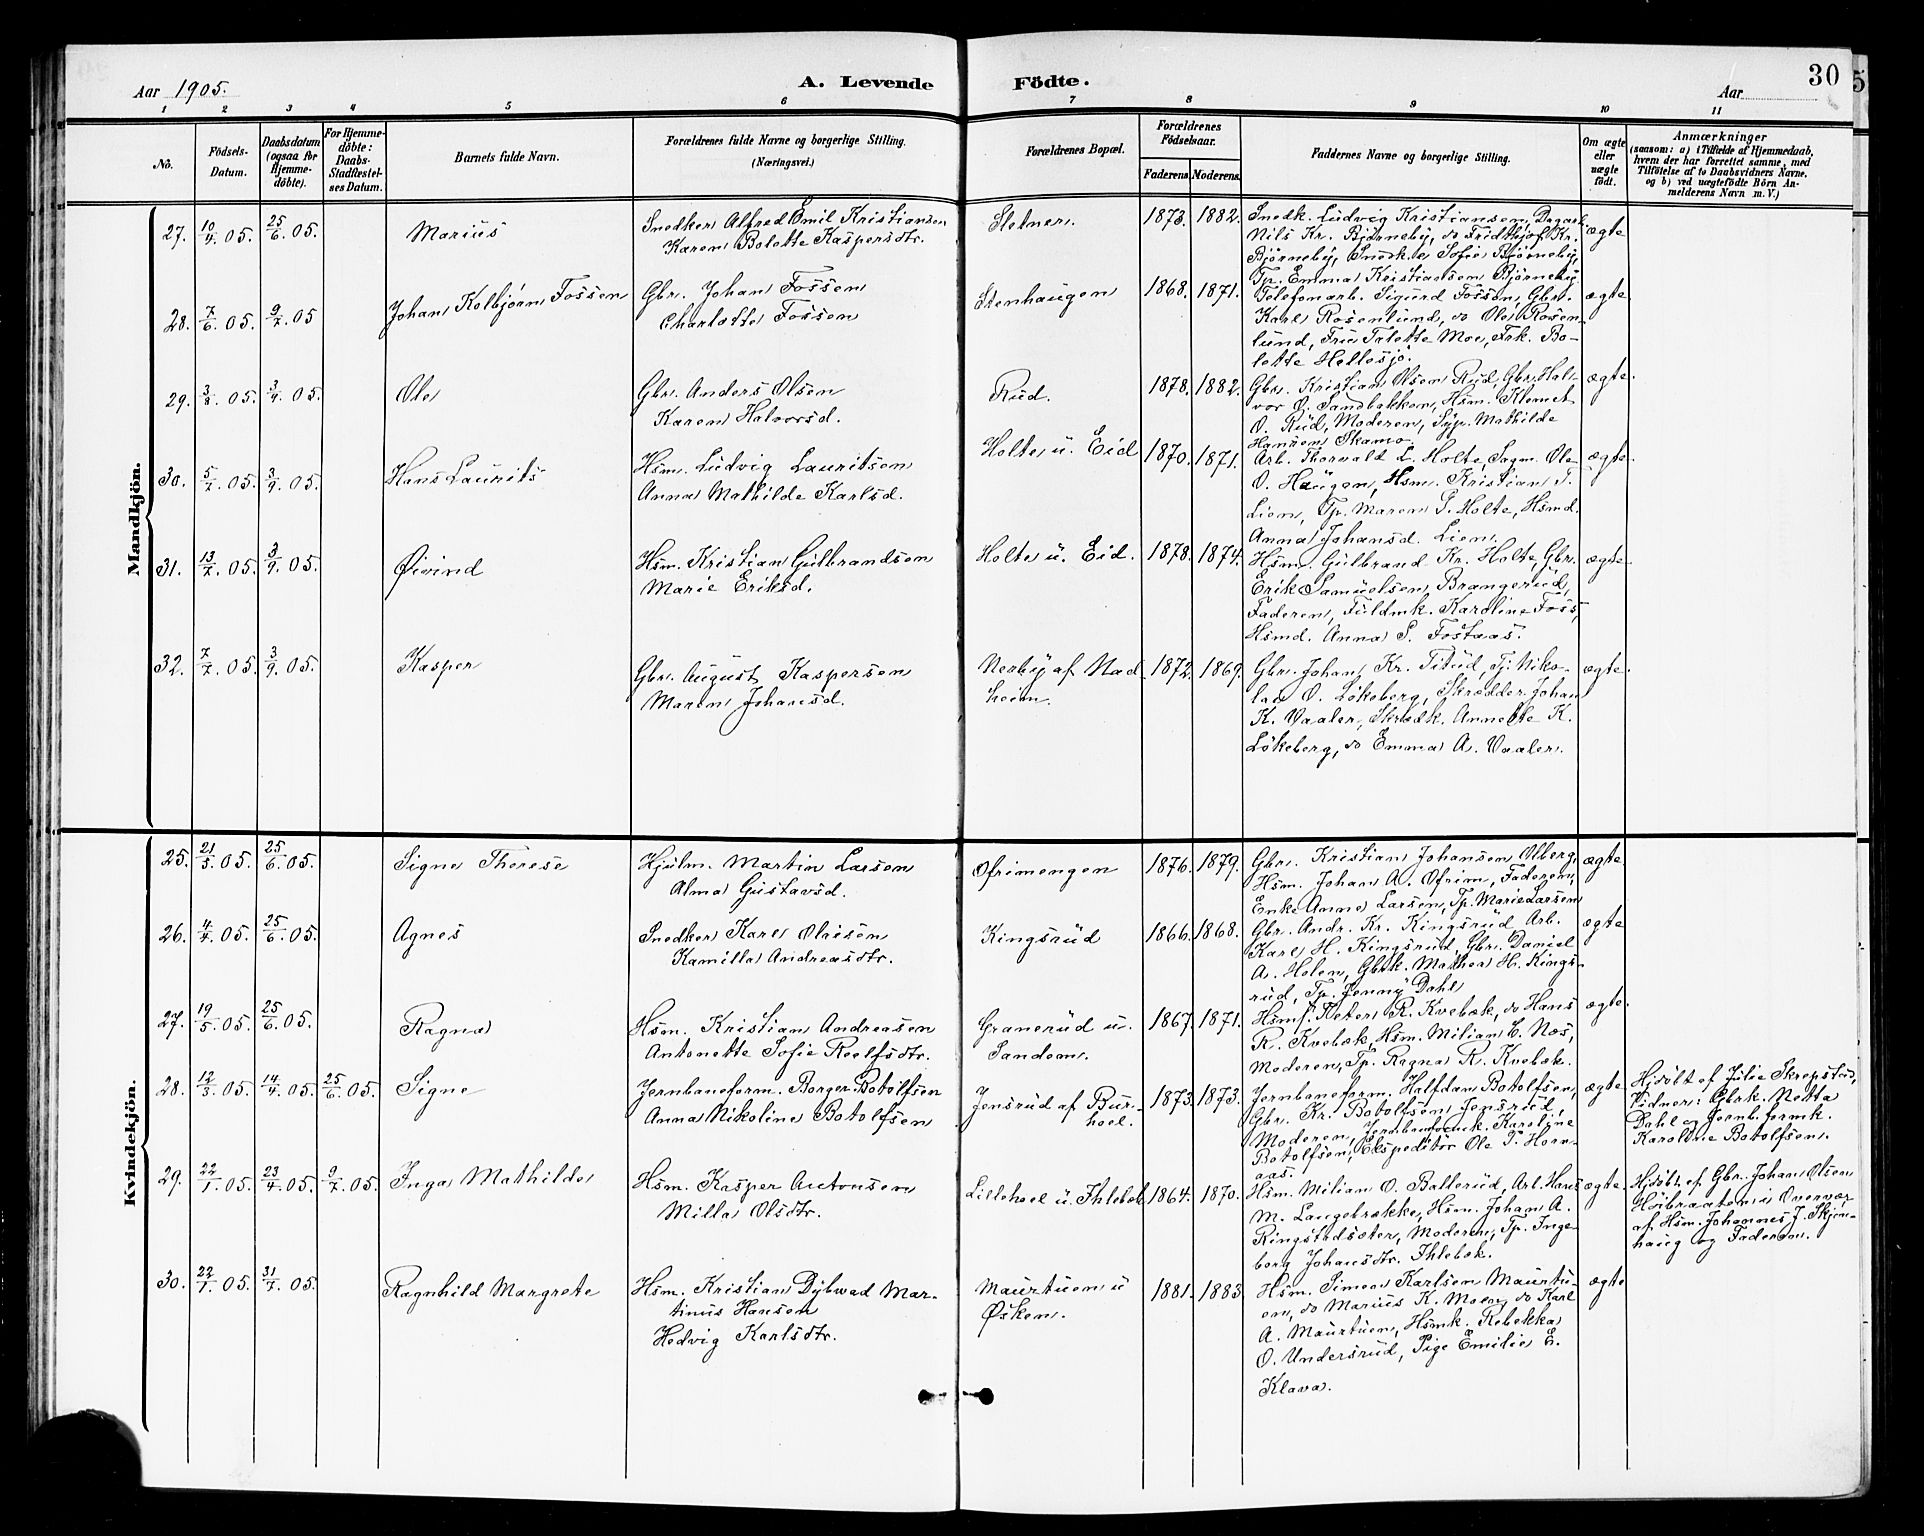 Aar 1905.
A. Levende Födte.
30
Aar
1 2 3 4 5 6 7 8 9 10 11
No.
Födsels-Datum.
Daabsdatum (ogsaa for Hjemmedöbte).
For Hjemmedöbte: Daabs-Stadfæstelses Datum.
Barnets fulde Navn.
Forældrenes fulde Navne og borgerlige Stilling. (Næringsvei.)
Forældrenes Bopæl.
Forældrenes Födselsaar.
Faderens. Moderens.
Faddernes Navne og borgerlige Stilling.
Om ægte eller uægte födt.
Anmærkninger
(saasom: a) i Tilfælde af Hjemmedaab,
hvem der har forrettet samme, med
Tilföielse af to Daabsvidners Navne,
og b) ved uægtefödte Börn An-
melderens Navn m. V.)
Mandkjön.
27. 10/4 05. 25/6 05. Marius
Snedker Alfred Emil Kristiansen
Karen Bolette Kaspersdtr.
Sletner. 1873. 1882.
Snedk. Ludvig Kristiansen, Dagarb.
Nils Kr. Bjørneby, do Fridthjof Kr.
Bjørneby, Snedk.e Sofie Bjørneby,
Tp. Emma Kristiansen Bjørneby
ægte
28. 7/6. 05. 9/7. 05 Johan Kolbjørn Fossen
Gbr. Johan Fossen
Charlotte Fossen
Stenhaugen 1868. 1871.
Telefonarb. Sigurd Fossen, Gbr.
Karl Rosenlund, do Ole Rosen-
lund, Frue Talette Moe, Frk. Bo-
lette Hellesjø.
ægte
29. 3/3. 05. 3/9. 05. Ole
Gbr. Anders Olsen
Karen Halvorsd.
Rud. 1878. 1882.
Gbr. Kristian Olsen Rud, Gbr. Hal-
vor O. Sandbakken, Hsm. Klemet
O. Rud, Moderen, Syp. Mathilde
Hansen Skamo.
ægte.
30. 5/7. 05. 3/9. 05. Hans Laurits
Hsm. Ludvig Lauritsen
Anna Mathilde Karlsd.
Holte u. Eid 1870. 1871.
Arb. Thorvald L. Holte, Sagm. Ole
O. Haugen, Hsm. Kristian T.
Lien, Tp. Maren P. Holte, Hsmd.
Anna Johansd. Lien.
ægte.
31. 13/7. 05. 3/9. 05. Øivind
Hsm. Kristian Gulbrandsen
Marie Eriksd.
Holte u. Eid. 1878. 1874.
Hsm. Gulbrand Kr. Holte, Gbr.
Erik Samuelsen, Brangerud,
Faderen, Fuldmk. Karoline Foss,
Hsmd. Anna S. Fostaas.
ægte
32. 7/7. 05. 3/9. 05. Kasper
Gbr. August Kaspersen
Maren Johansd.
Nerby af Nad
heim. 1872. 1869.
Gbr. Johan Kr. Titud, Tj. Niko-
lai O. Løkeberg, Skredder Johan
K. Vaaler, Skræk. Annette K.
Løkeberg, do Emma A. Vaaler.
ægte.
Kvindekjön.
25. 21/5. 05. 25/6. 05. Signe Therese
Hjulm. Martin Larsen
Alma Gustavsd.
Ofrimengen 1876. 1879.
Gbr. Kristian Johansen Olberg,
Hsm. Johan A. Ofrim, Faderen,
Enke Anne Larsen, Tp. Marie Larsen
ægte
26. 4/4. 05. 25/6. 05. Agnes
Snedker Karl Olsen
Kamilla Andreasdtr.
Kingsrud 1866. 1868.
Gbr. Andr. Kr. Kingsrud, Arb.
Karl H. Kingsrud, Gbr. Daniel
A. Holen, Gbrk. Mathea H. Kings-
rud, Tp. Jenny Dahl
ægte
27. 19/5. 05. 25/6. 05. Ragna
Hsm. Kristian Andreasen
Antonette Sofie Roelfsdtr.
Granerud u.
Sandem. 1867. 1871.
Hsmf. Peter R. Kvebæk, do Hans
R. Kvebæk, Hsm. Milian C. Næs,
Moderen, Tp. Ragna R. Kvebæk.
ægte.
28. 12/3. 05. 14/4. 05. 25/6. 05. Signe
Jernbaneform. Borger Botolfsen
Anna Nikoline Botolfsen
Jensrud af Bur-
hoel. 1873. 1873.
Jernbaneform. Halfdan Botolfsen,
Gbr. Kr. Botolfsen Jensrud,
Moderen, Jernbaneformk. Karoline
Botolfsen, Ekspeditør Ole T. Horn-
aas.
ægte
Hjdöbt af Julie Skrepstad,
Vidner: Gbrk. Netta
Dahl og Jernb. formk.
Karoline Botolfsen.
29. 22/1. 05. 23/4. 05. 9/7. 05. Inga Mathilde
Hsm. Kasper Antonsen
Milla Olsdtr.
Lillehoel u. Ihlebæk 1864. 1870.
Hsm. Milian O. Ballerud, Arb. Hans
M. Langebrække, Hsm. Johan A.
Ringstadsæter, Moderen, Tp. Inge-
borg Johansdtr. Ihlebæk.
ægte.
Hjdöbt af Gbr. Johan Olsen
Høibraaten i Overvær
af Hsm. Johannes J. Skjøn-
haug og Faderen.
30. 22/1. 05. 31/7. 05. Ragnhild Margrete
Hsm. Kristian Dybwad Mar-
tinus Hansen
Hedvig Karlsdtr.
Maurtuen u
Øsken. 1881. 1883
Hsm. Simen Karlsen Maurtu-
en, do Marius K. Moen, do Karl
A. Maurtuen, Hsmk. Rebekka
O. Undersrud, Pige Emilie E.
Klava.
ægte